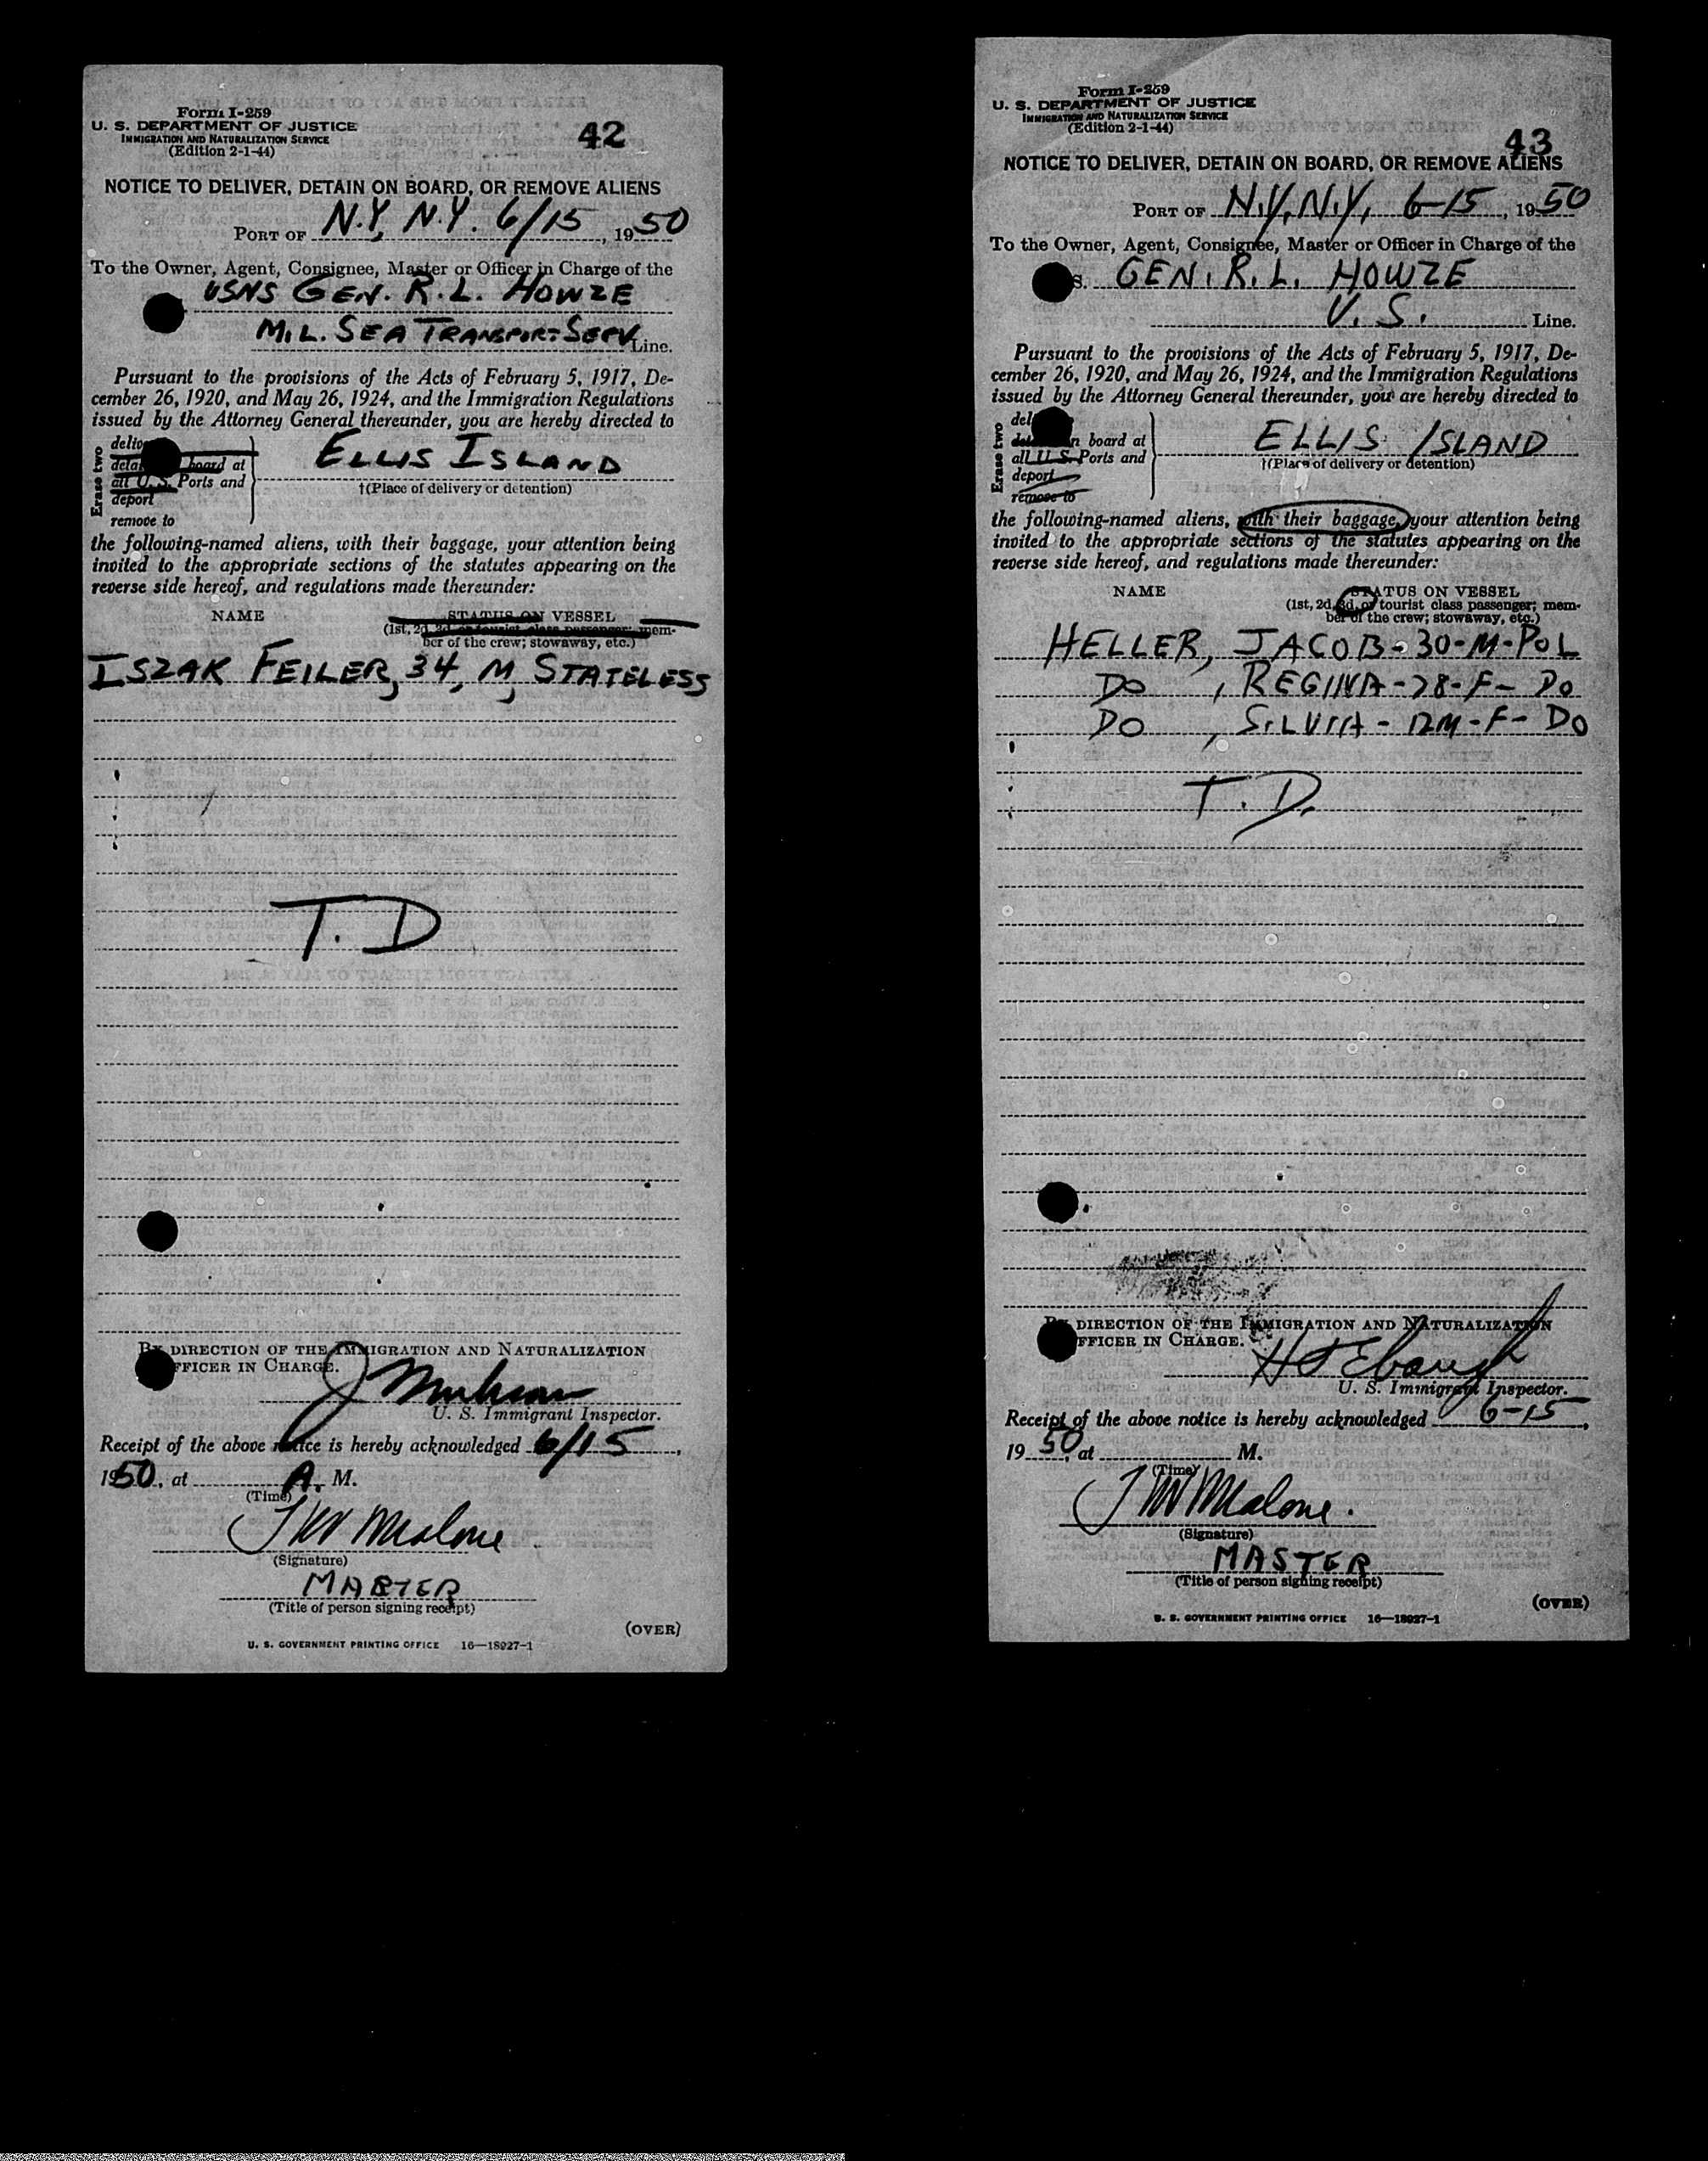 Form I-259
U. S. DEPARTMENT OF JUSTICE
IMMIGRATION AND NATURALIZATION SERVICE
(Edition 2-1-44)
42
NOTICE TO DELIVER, DETAIN ON BOARD, OR REMOVE ALIENS
PORT OF N.Y, N.Y. 6/15, 1950
To the Owner, Agent, Consignee, Master or Officer in Charge of the
USNS GEN. R.L. HOWZE
M.L. SEA TRANSPORT SERV. Line.
Pursuant to the provisions of the Acts of February 5, 1917, De-
cember 26, 1920, and May 26, 1924, and the Immigration Regulations
issued by the Attorney General thereunder, you are hereby directed to
Erase two
board at
all U. S. Ports and
deport
remove to
ELLIS ISLAND
†(Place of delivery or detention)
the following-named aliens, with their baggage, your attention being
invited to the appropriate sections of the statutes appearing on the
reverse side hereof, and regulations made thereunder:
NAME
STATUS ON VESSEL
(1st, 2d, 3d, or tourist class passenger; mem-
ber of the crew; stowaway, etc.)
ISZAK FEILER, 34, M, STATELESS
T. D
BY DIRECTION OF THE IMMIGRATION AND NATURALIZATION
OFFICER IN CHARGE.
U. S. Immigrant Inspector.
Receipt of the above notice is hereby acknowledged 6/15,
1950, at A. M.
(Time)
J W Malone
(Signature)
MASTER
(Title of person signing receipt)
(OVER)
U. S. GOVERNMENT PRINTING OFFICE 16—18927-1
Form I-259
U. S. DEPARTMENT OF JUSTICE
IMMIGRATION AND NATURALIZATION SERVICE
(Edition 2-1-44)
43
NOTICE TO DELIVER, DETAIN ON BOARD, OR REMOVE ALIENS
PORT OF N.Y, N.Y, 6-15, 1950
To the Owner, Agent, Consignee, Master or Officer in Charge of the
S. GEN. R. L. HOWZE
U. S. Line.
Pursuant to the provisions of the Acts of February 5, 1917, De-
cember 26, 1920, and May 26, 1924, and the Immigration Regulations
issued by the Attorney General thereunder, you are hereby directed to
Erase two
board at
all U. S. Ports and
deport
remove to
ELLIS ISLAND
†(Place of delivery or detention)
the following-named aliens, with their baggage, your attention being
invited to the appropriate sections of the statutes appearing on the
reverse side hereof, and regulations made thereunder:
NAME
STATUS ON VESSEL
(1st, 2d, 3d, or tourist class passenger; mem-
ber of the crew; stowaway, etc.)
HELLER, JACOB - 30 - M - POL
DO, REGINA - 28 - F - DO
DO, SILVIA - 12M - F - DO
T. D.
BY DIRECTION OF THE IMMIGRATION AND NATURALIZATION
OFFICER IN CHARGE.
U. S. Immigrant Inspector.
Receipt of the above notice is hereby acknowledged 6-15,
1950, at M.
(Time)
J W Malone.
(Signature)
MASTER
(Title of person signing receipt)
(OVER)
U. S. GOVERNMENT PRINTING OFFICE 16—18927-1